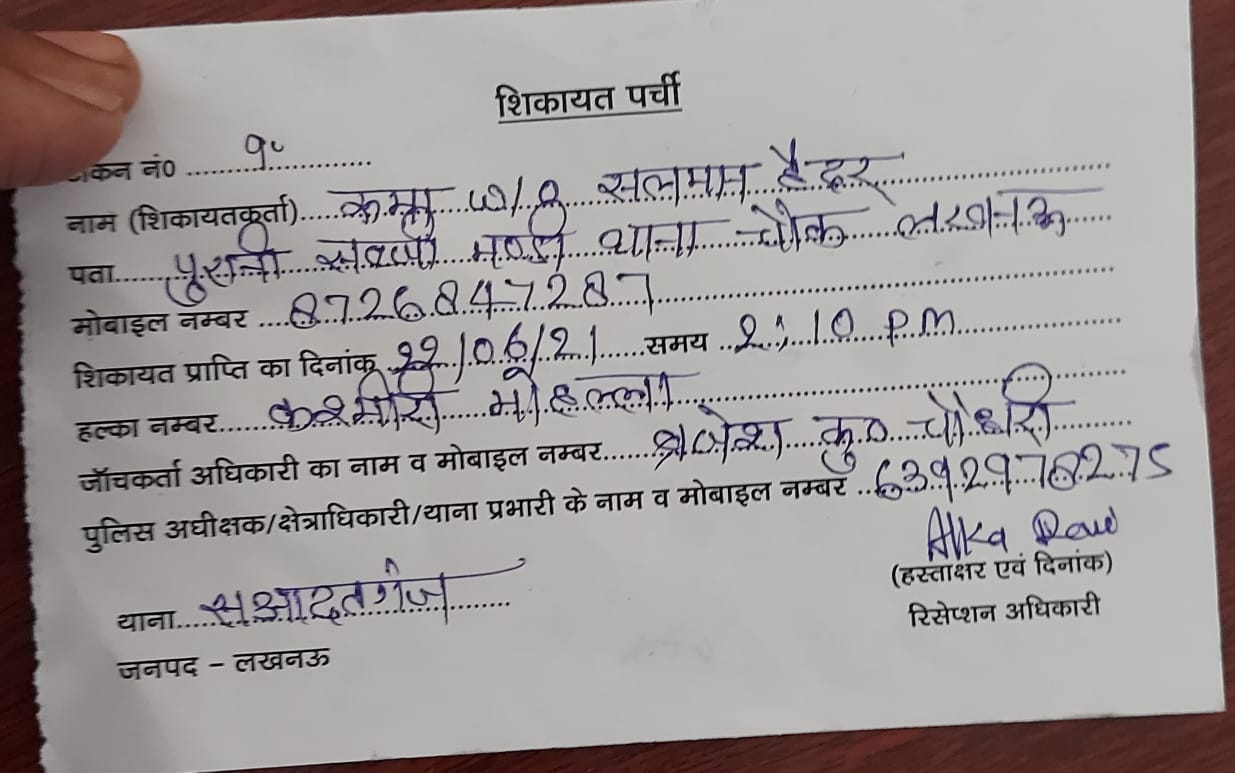 शिकायत पर्ची
कन नं0 ...... 90
नाम (शिकायतकर्ता)..... w/o सलमान हैदर
पता...... पुरानी सब्जी मण्डी थाना चौक लखनऊ
मोबाइल नम्बर .... 8726847287
शिकायत प्राप्ति का दिनांक 22/06/21 ...... समय .. 2:10 PM
हल्का नम्बर....... कश्मीरी मोहल्ला
जॉचकर्ता अधिकारी का नाम व मोबाइल नम्बर...... कु0 चौधरी
पुलिस अधीक्षक/क्षेत्राधिकारी/थाना प्रभारी के नाम व मोबाइल नम्बर .. 6392978275
Alka
(हस्ताक्षर एवं दिनांक)
थाना.... सआदतगंज
रिसेप्शन अधिकारी
जनपद – लखनऊ